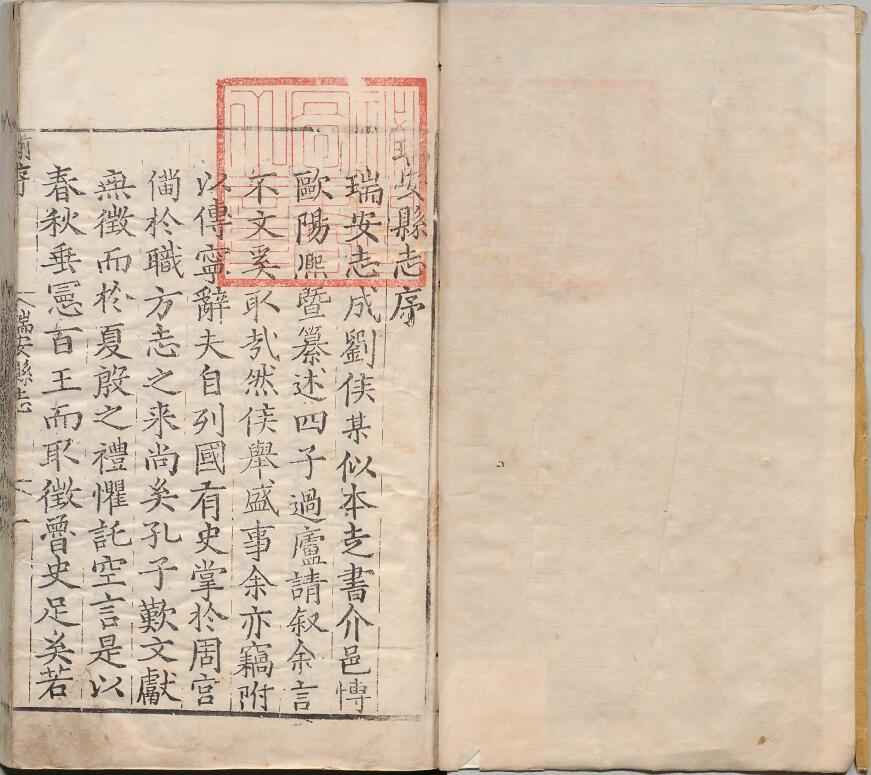 瑞安縣志序
瑞安志成劉侯某似本走書介邑博
歐陽熈暨纂述四子過廬請叙余言
不文奚取㢤然侯舉盛事余亦竊附
以傳寧辭夫自列國有史掌於周官
僃於職方志之来尚矣孔子歎文獻
無徵而於夏殷之禮懼託空言是以
春秋垂憲百王而取徵魯史足矣若
瑞安縣志
一